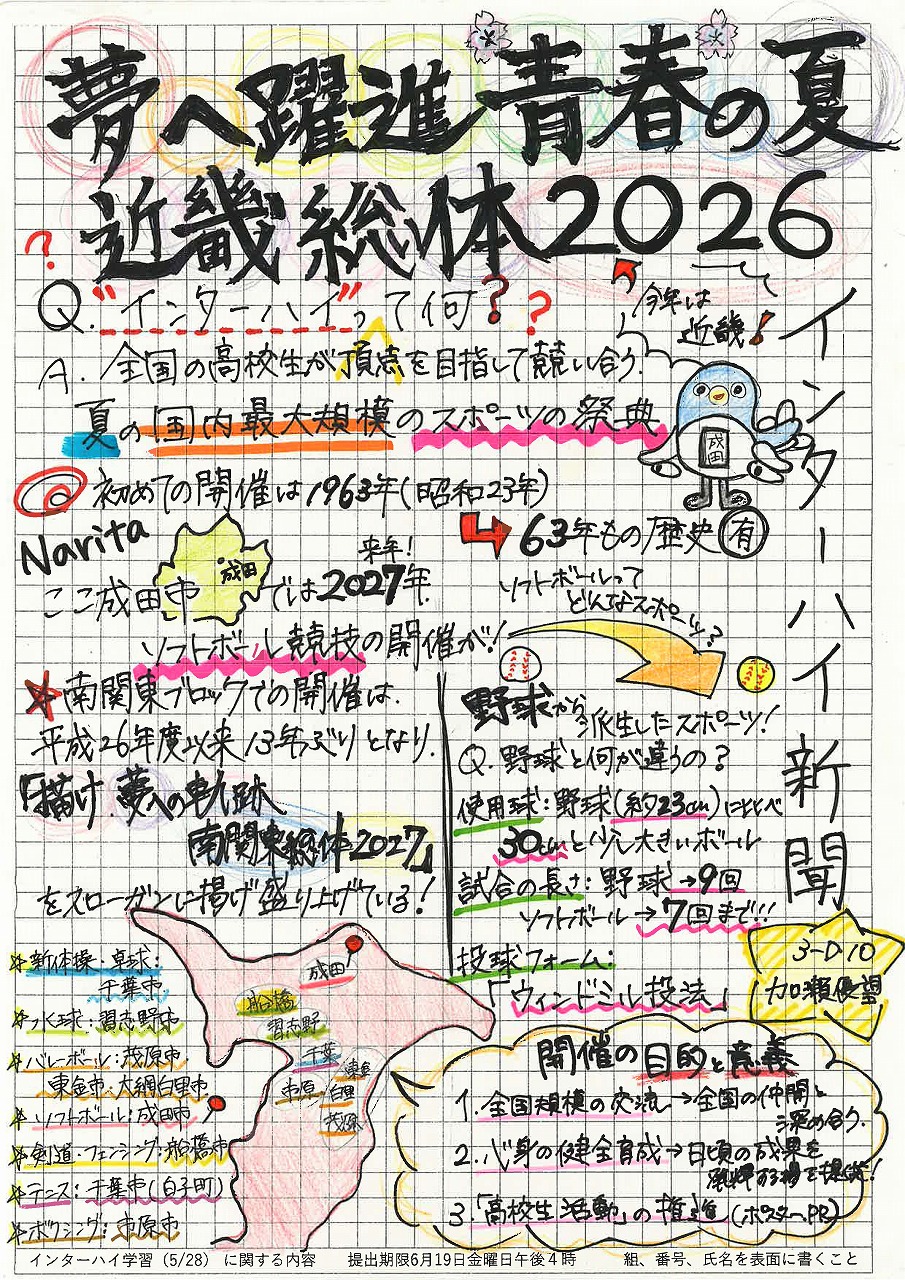 夢へ躍進 青春の夏
近畿総体2026
インターハイ新聞
今年は
近畿!
Q.“インターハイ”って何?
A. 全国の高校生が頂点を目指して競い合う.
夏の国内最大規模のスポーツの祭典
成田
初めての開催は1963年(昭和23年)
63年もの歴史有
Narita
成田
来年!
ここ成田市では2027年.
ソフトボール競技の開催が!
南関東ブロックでの開催は.
平成26年度以来13年ぶりとなり.
「描け.夢への軌跡
南関東総体2027」
をスローガンに掲げ盛り上げている!
ソフトボールって
どんなスポーツ?
野球から派生したスポーツ!
Q. 野球と何が違うの?
使用球:野球(約23cm)に比べ
30cmと少し大きいボール
試合の長さ:野球→9回
ソフトボール→7回まで!!
投球フォーム:
「ウィンドミル投法」
3-D-10
加瀬優望
新体操・卓球:
千葉市
つく球:習志野市
バレーボール:茂原市
東金市・大網白里市
ソフトボール:成田市
剣道・フェンシング:船橋市
テニス:千葉市(白子町)
ボクシング:市原市
成田
船橋
習志野
千葉
東金
市原
白里
茂原
開催の目的と意義
1.全国規模の交流→全国の仲間と
深め合う.
2.心身の健全育成→日頃の成果を
発揮する場を提供!
3.「高校生活動」の推進(ポスター、PR)
インターハイ学習(5/28)に関する内容 提出期限6月19日金曜日午後4時 組、番号、氏名を表面に書くこと